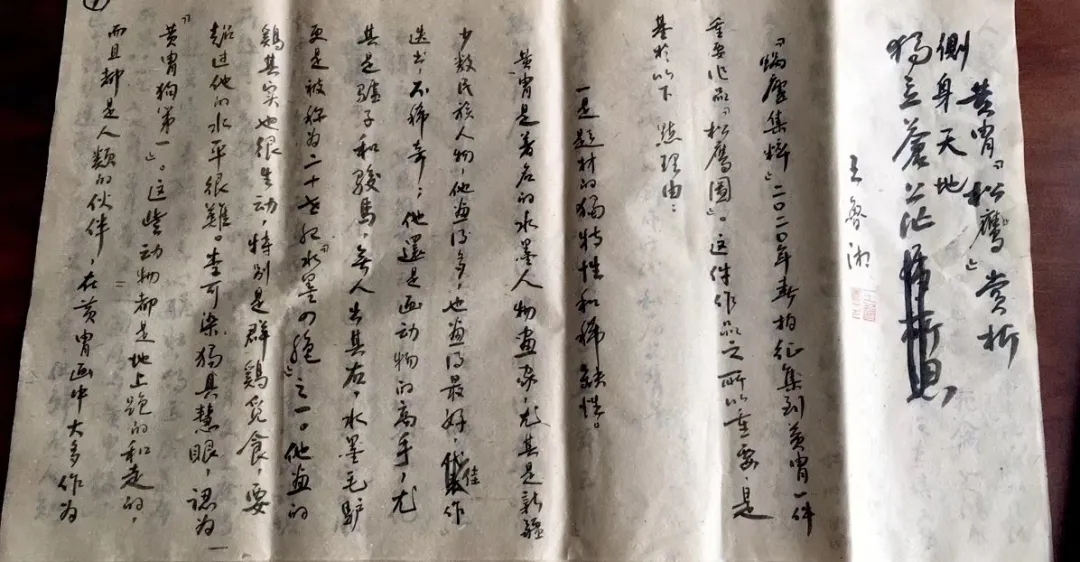 ①
黄胄『松鹰』赏析
侧身天地
獨立蒼茫
王鲁湘
『蜗庐集粹』二〇二〇年新拍征集到黄胄一件
重要作品『松鹰圖』。这件作品之所以重要，是
基於以下 点理由：
一是题材的獨特性和稀缺性。
黄胄是著名的水墨人物画家，尤其是新疆
少数民族人物，他画得多，也画得最好，佳作
迭出，不稀奇；他還是画动物的高手，尤
其是驢子和駿馬，无人出其右，水墨毛驴
更是被称为二十世纪『水墨四绝』之一。他画的
鷄其实也很生动，特别是群鷄觅食，要
超过他的水平很難。李可染獨具慧眼，認为
『黄胄狗第一』。这些动物都是地上跑的和走的，
而且都是人類的伙伴，在黄胄画中大多作为